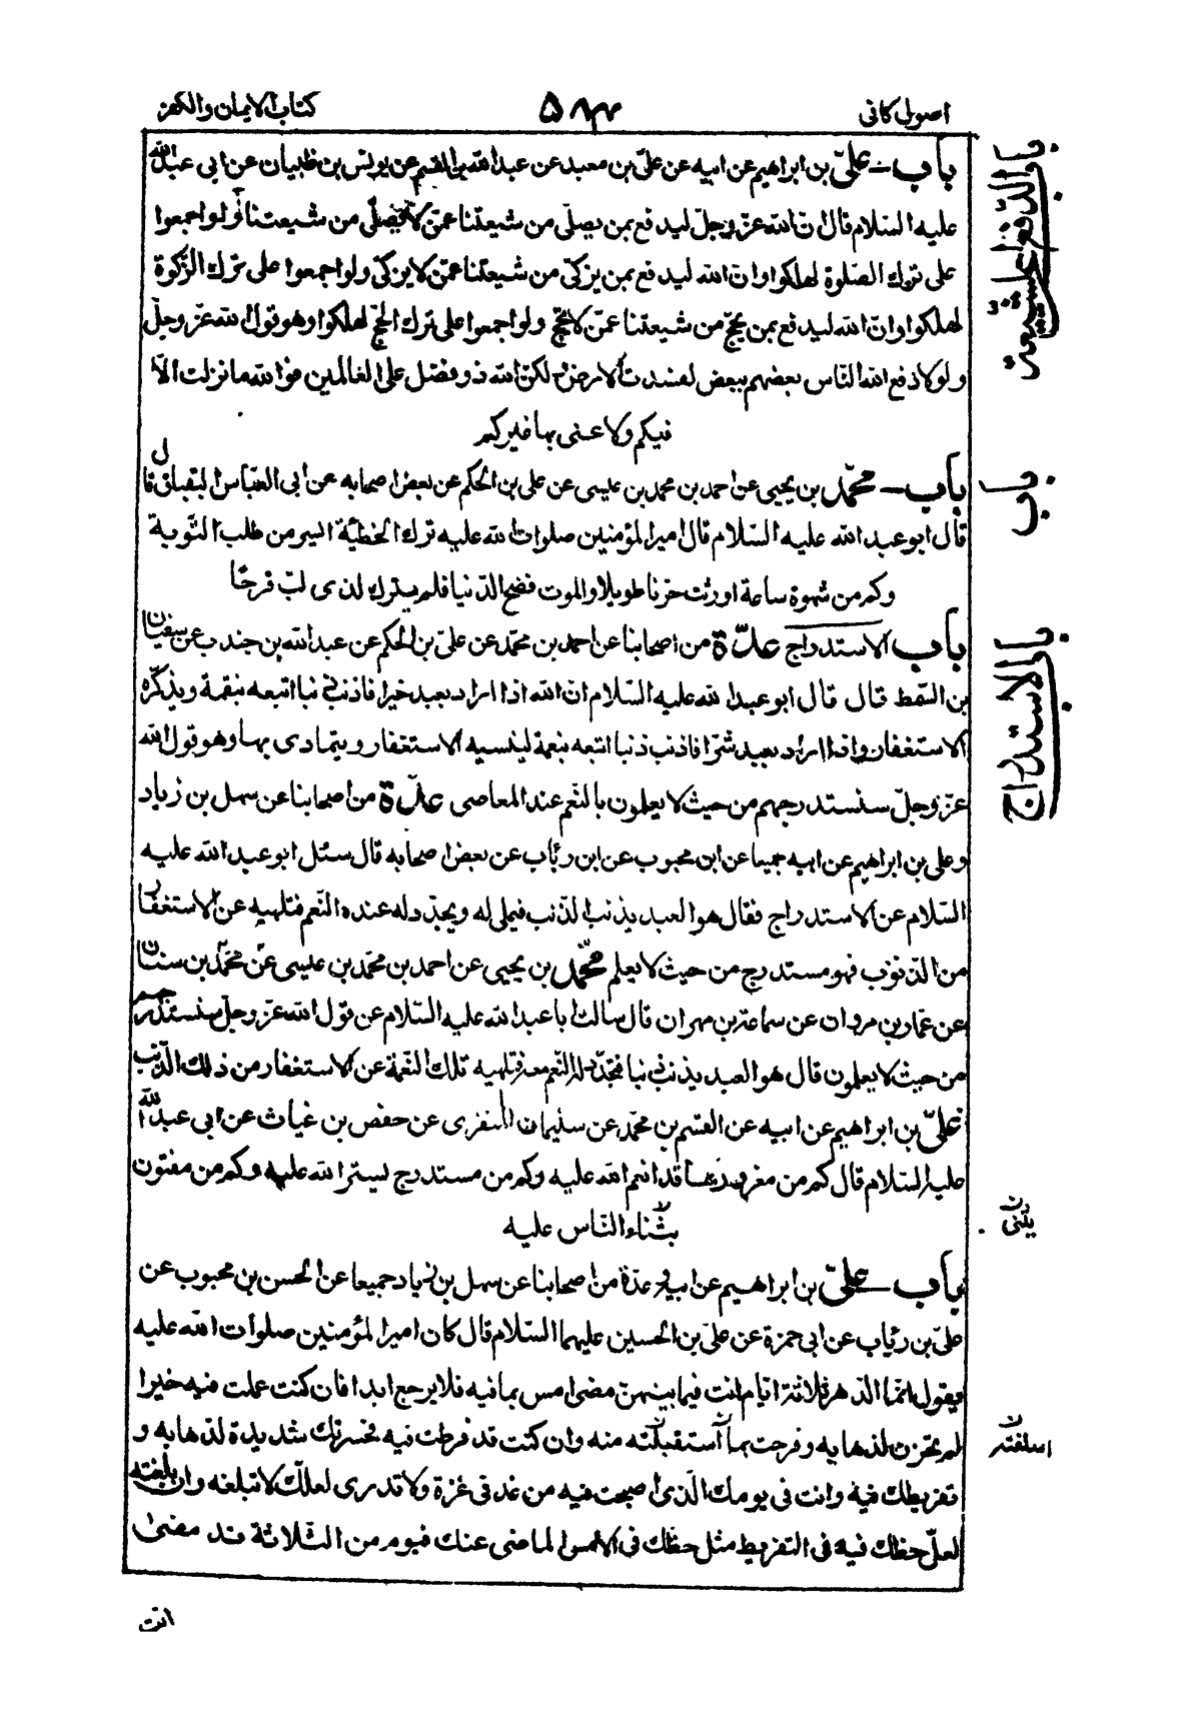 اصول كافى
۵۸۳
كتاب الايمان والكفر
باب الدفع عن الشيعة
باب — علىّ بن ابراهيم عن ابيه عن علىّ بن معبد عن عبد الله بن القسم عن يونس بن ظبيان عن ابى عبد الله
عليه السّلام قال انّ الله عزّ وجلّ ليدفع بمن يصلّى من شيعتنا عمّن لا يصلّى من شيعتنا ولو اجمعوا
على ترك الصّلوة لهلكوا وانّ الله ليدفع بمن يزكّى من شيعتنا عمّن لا يزكّى ولو اجمعوا على ترك الزّكوة
لهلكوا وانّ الله ليدفع بمن يحجّ من شيعتنا عمّن لا يحجّ ولو اجمعوا على ترك الحجّ لهلكوا وهو قول الله عزّ وجلّ
ولولا دفع الله النّاس بعضهم ببعض لفسدت الارض ولكنّ الله ذو فضل على العالمين فو الله ما نزلت الّا
فيكم ولا عنى بها غيركم
باب
باب — محمّد بن يحيى عن احمد بن محمد بن عيسى عن على بن الحكم عن بعض اصحابه عن ابى العبّاس البقباق قال
قال ابو عبد الله عليه السّلام قال امير المؤمنين صلوات الله عليه ترك الخطيئة ايسر من طلب التّوبة
وكم من شهوة ساعة اورثت حزنا طويلا والموت فضح الدّنيا فلم يترك لذى لبّ فرحًا
باب الاستدراج
باب الاستدراج عدّة من اصحابنا عن احمد بن محمّد عن علىّ بن الحكم عن عبد الله بن جندب عن سفيان
بن السّمط قال قال ابو عبد الله عليه السّلام انّ الله اذا اراد بعبد خيرا فاذنب ذنبا اتبعه بنقمة ويذكّره
الاستغفار واذا اراد بعبد شرّا فاذنب ذنبا اتبعه بنعمة لينسيه الاستغفار ويتمادى بها وهو قول الله
عزّ وجلّ سنستدرجهم من حيث لا يعلمون بالنّعم عند المعاصى عدّة من اصحابنا عن سهل بن زياد
وعلى بن ابراهيم عن ابيه جميعا عن ابن محبوب عن ابن رئاب عن بعض اصحابه قال سئل ابو عبد الله عليه
السّلام عن الاستدراج فقال هو العبد يذنب الذّنب فيملى له ويجدّد له عنده النّعم فتلهيه عن الاستغفار
من الذّنوب فهو مستدرج من حيث لا يعلم محمّد بن يحيى عن احمد بن محمّد بن عيسى عن محمّد بن سنان
عن عمّار بن مروان عن سماعة بن مهران قال سالت ابا عبد الله عليه السّلام عن قول الله عزّ وجلّ سنستدرجهم
من حيث لا يعلمون قال هو العبد يذنب ذنبا فتجدّد له النّعم معه فتلهيه تلك النّعمة عن الاستغفار من ذلك الذّنب
علىّ بن ابراهيم عن ابيه عن القسم بن محمّد عن سليمان المنقرى عن حفص بن غياث عن ابى عبد الله
عليه السّلام قال كم من مغرور بما قد انعم الله عليه وكم من مستدرج يستر الله عليه وكم من مفتون
بثناء النّاس عليه
باب — علىّ بن ابراهيم عن ابيه وعدّة من اصحابنا عن سهل بن زياد جميعا عن الحسن بن محبوب عن
علىّ بن رئاب عن ابى حمزة عن علىّ بن الحسين عليهما السّلام قال كان امير المؤمنين صلوات الله عليه
يقول انّما الدّهر ثلاثة ايّام انت فيما بينهنّ مضى امس بما فيه فلا يرجع ابدا فان كنت عملت فيه خيرا
لم تحزن لذهابه وفرحت بما استقبلته منه وان كنت قد فرطت فيه فحسرتك شديدة لذهابه و
تفريطك فيه وانت فى يومك الّذى اصبحت فيه من غد فى غرّة ولا تدرى لعلّك لا تبلغه وان بلغته
لعلّ حظّك فيه فى التفريط مثل حظّك فى الامس الماضى عنك فيوم من الثّلاثة قد مضى
انت